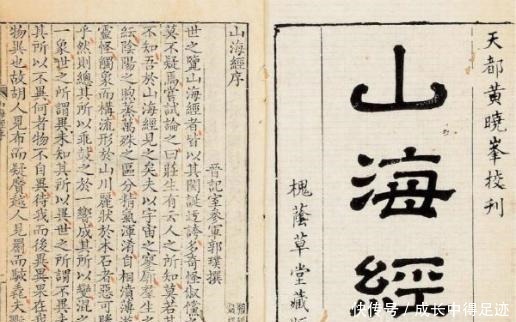 天都黃曉峯校刊
山海經
槐蔭草堂藏
山海經序
晉記室參軍郭璞撰
世之覽山海經者皆以其閎誕迂誇多奇怪俶儻
莫不疑焉嘗試論之曰莊生有云人之所知莫若其
不知吾於山海經見之矣夫以宇宙之寥廓羣生之
紜陰陽之煦蒸萬殊之區分精氣渾淆自相濆薄
靈怪觸象而構流形於山川麗狀於木石者惡可
乎然則總其所以乖鼓之於一響成其所以變混之
一象世之所謂異未知其所以異世之所謂不異
其所以不異何者物不自異待我而後異異果在
物異也故胡人見布而疑黂越人見罽而駭毳夫
快传号／成长中得足迹